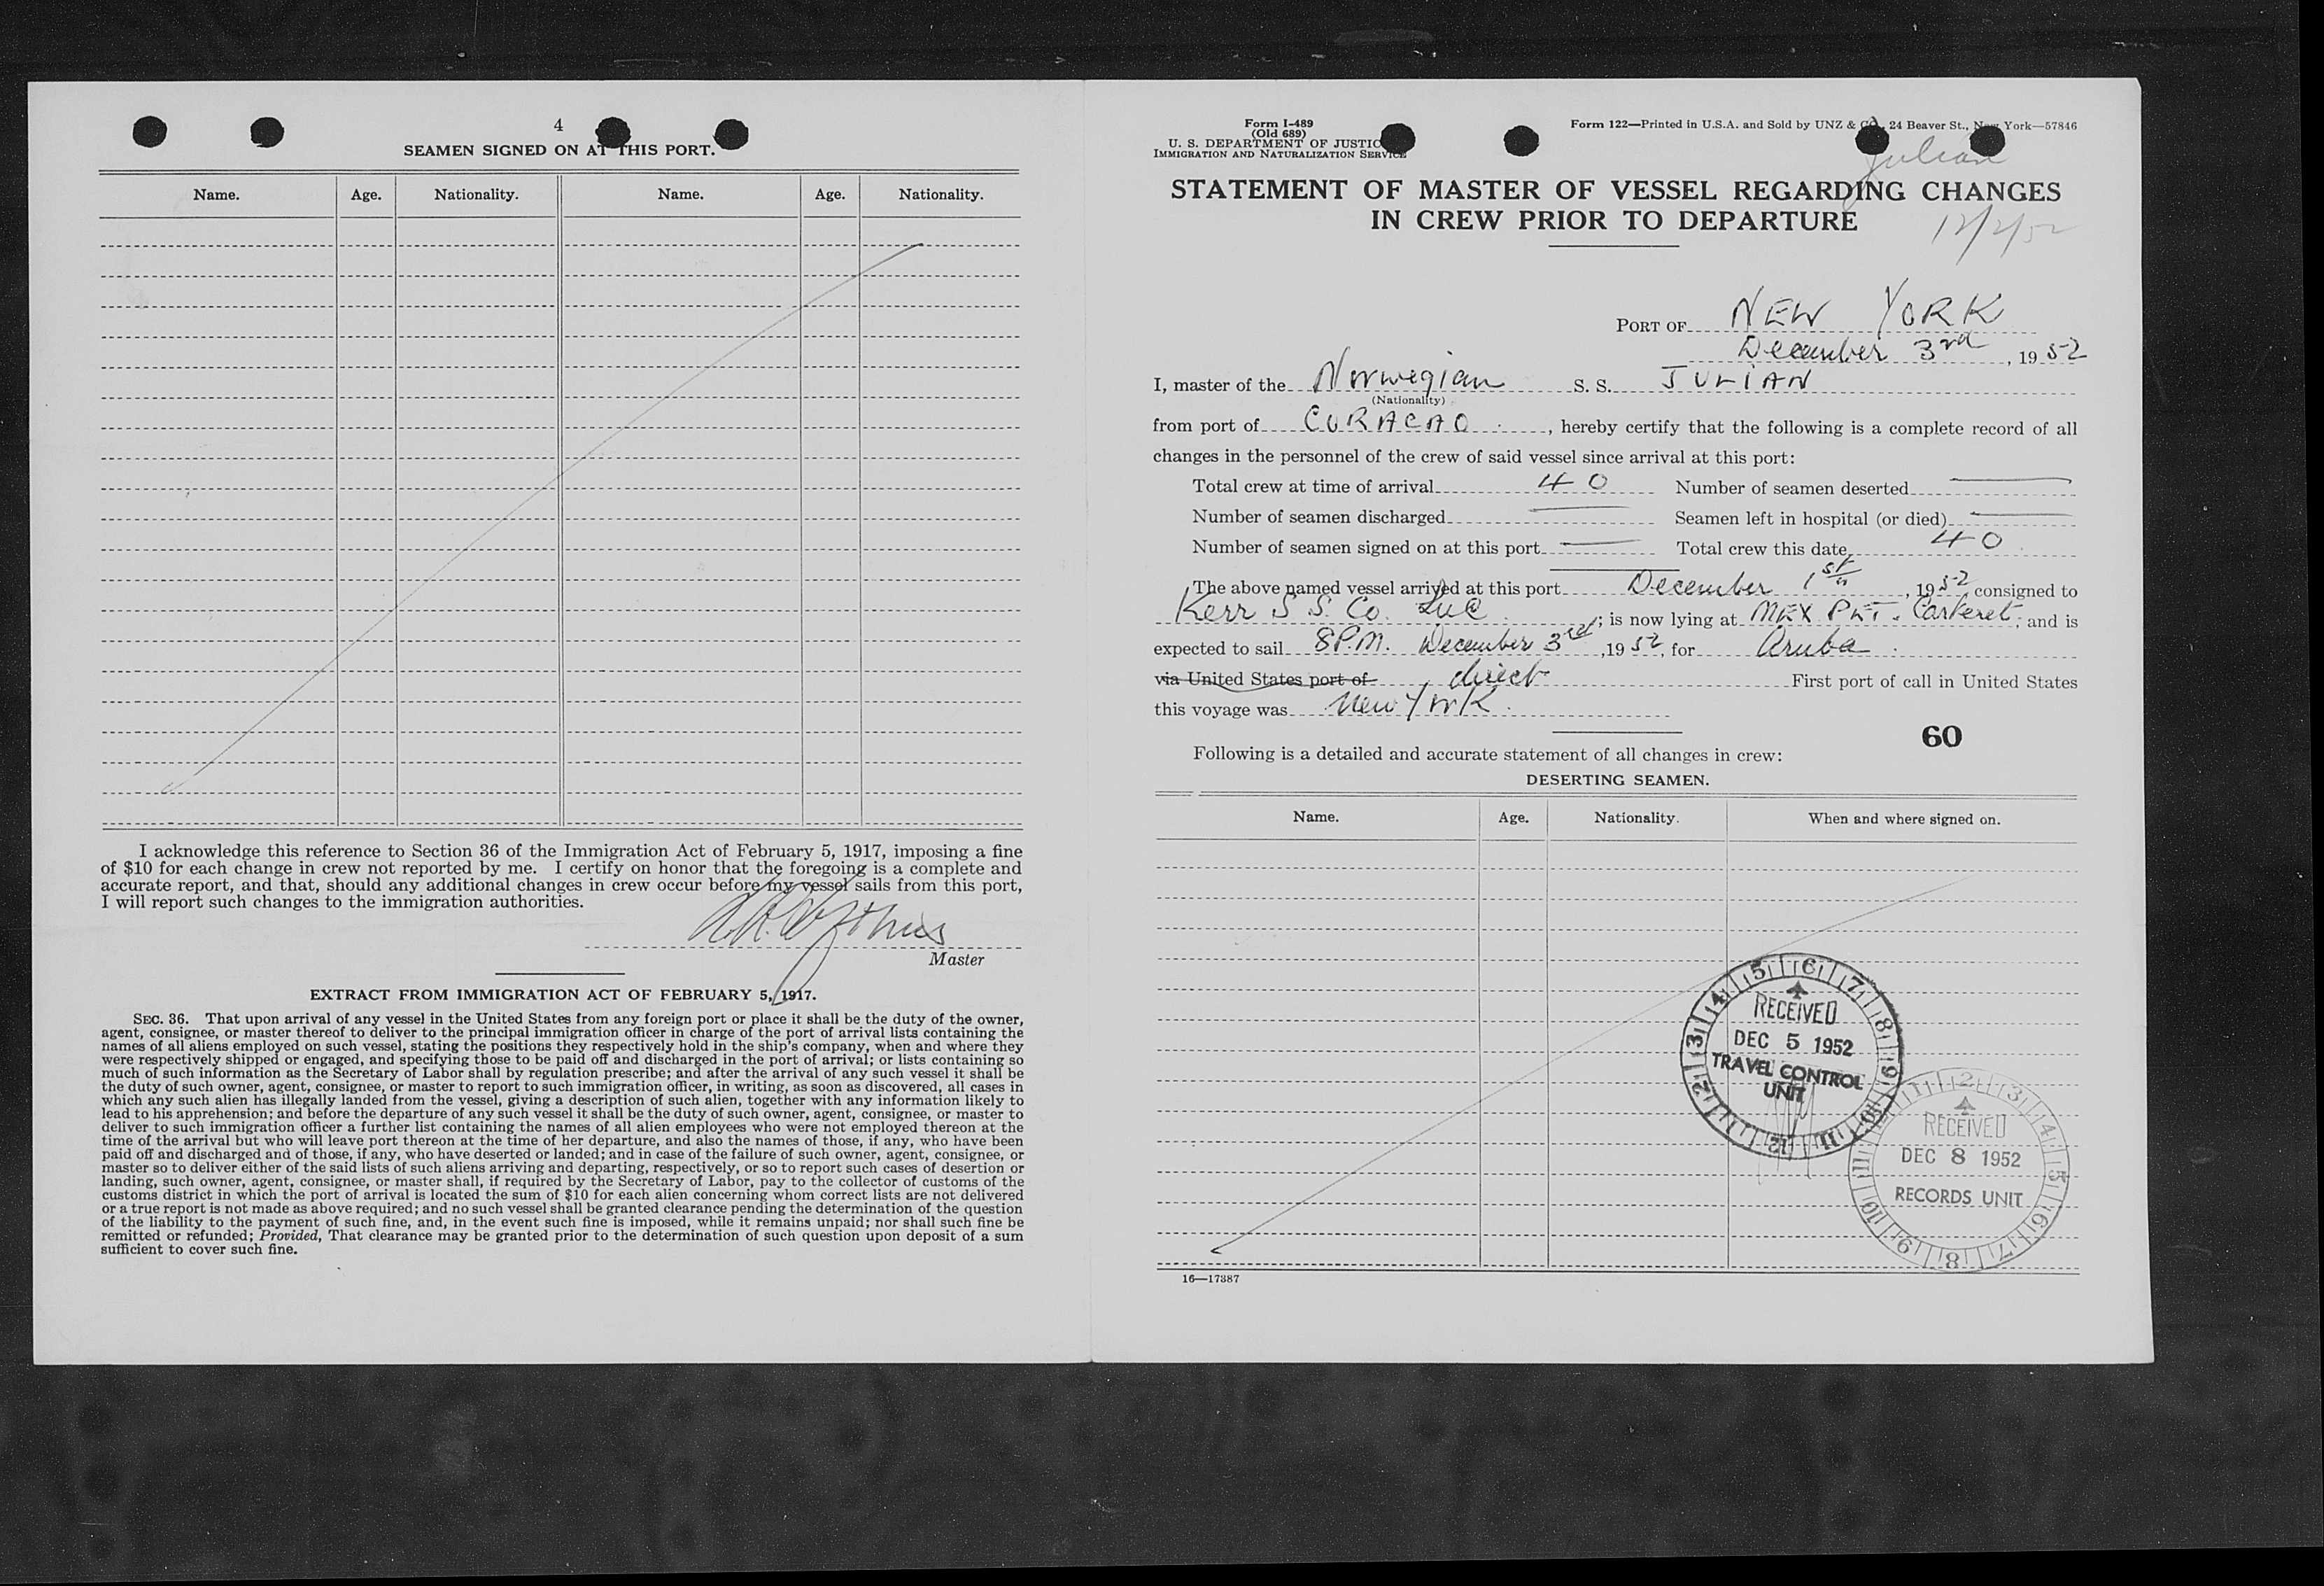 4
SEAMEN SIGNED ON AT THIS PORT.
Name. Age. Nationality. Name. Age. Nationality.
I acknowledge this reference to Section 36 of the Immigration Act of February 5, 1917, imposing a fine
of $10 for each change in crew not reported by me. I certify on honor that the foregoing is a complete and
accurate report, and that, should any additional changes in crew occur before my vessel sails from this port,
I will report such changes to the immigration authorities.
Master
EXTRACT FROM IMMIGRATION ACT OF FEBRUARY 5, 1917.
SEC. 36. That upon arrival of any vessel in the United States from any foreign port or place it shall be the duty of the owner,
agent, consignee, or master thereof to deliver to the principal immigration officer in charge of the port of arrival lists containing the
names of all aliens employed on such vessel, stating the positions they respectively hold in the ship's company, when and where they
were respectively shipped or engaged, and specifying those to be paid off and discharged in the port of arrival; or lists containing so
much of such information as the Secretary of Labor shall by regulation prescribe; and after the arrival of any such vessel it shall be
the duty of such owner, agent, consignee, or master to report to such immigration officer, in writing, as soon as discovered, all cases in
which any such alien has illegally landed from the vessel, giving a description of such alien, together with any information likely to
lead to his apprehension; and before the departure of any such vessel it shall be the duty of such owner, agent, consignee, or master to
deliver to such immigration officer a further list containing the names of all alien employees who were not employed thereon at the
time of the arrival but who will leave port thereon at the time of her departure, and also the names of those, if any, who have been
paid off and discharged and of those, if any, who have deserted or landed; and in case of the failure of such owner, agent, consignee, or
master so to deliver either of the said lists of such aliens arriving and departing, respectively, or so to report such cases of desertion or
landing, such owner, agent, consignee, or master shall, if required by the Secretary of Labor, pay to the collector of customs of the
customs district in which the port of arrival is located the sum of $10 for each alien concerning whom correct lists are not delivered
or a true report is not made as above required; and no such vessel shall be granted clearance pending the determination of the question
of the liability to the payment of such fine, and, in the event such fine is imposed, while it remains unpaid; nor shall such fine be
remitted or refunded; Provided, That clearance may be granted prior to the determination of such question upon deposit of a sum
sufficient to cover such fine.
Form I-489
(Old 689)
U. S. DEPARTMENT OF JUSTICE
IMMIGRATION AND NATURALIZATION SERVICE
Form 122—Printed in U.S.A. and Sold by UNZ & CO., 24 Beaver St., New York—57846
Julian
STATEMENT OF MASTER OF VESSEL REGARDING CHANGES
IN CREW PRIOR TO DEPARTURE
12/2/52
PORT OF NEW YORK
December 3rd, 1952
I, master of the Norwegian S. S. JULIAN
(Nationality)
from port of CURACAO, hereby certify that the following is a complete record of all
changes in the personnel of the crew of said vessel since arrival at this port:
Total crew at time of arrival 40 Number of seamen deserted —
Number of seamen discharged — Seamen left in hospital (or died) —
Number of seamen signed on at this port — Total crew this date 40
The above named vessel arrived at this port December 1st, 1952 consigned to
Kerr S.S. Co. Inc; is now lying at MEX PET. Carteret; and is
expected to sail 8 P.M. December 3rd, 1952, for Aruba.
via United States port of direct First port of call in United States
this voyage was New York.
60
Following is a detailed and accurate statement of all changes in crew:
DESERTING SEAMEN.
Name. Age. Nationality. When and where signed on.
1 2 3 4 5 6 7 8 9 10 11 12
RECEIVED
DEC 5 1952
TRAVEL CONTROL
UNIT
1 2 3 4 5 6 7 8 9 10 11 12
RECEIVED
DEC 8 1952
RECORDS UNIT
16—17387